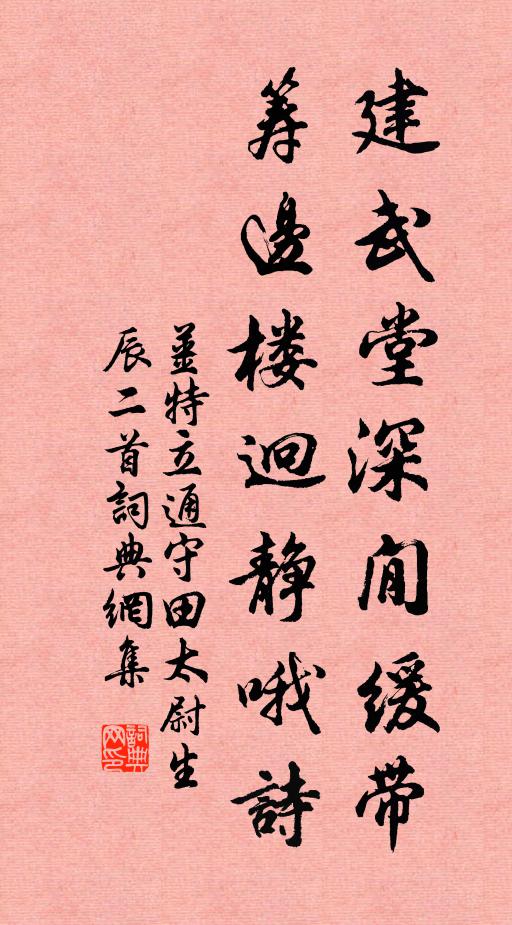 建武堂深閒緩帶
筹邊楼迥静哦詩
姜特立通守田太尉生
辰二首詞典網集
詞典網印